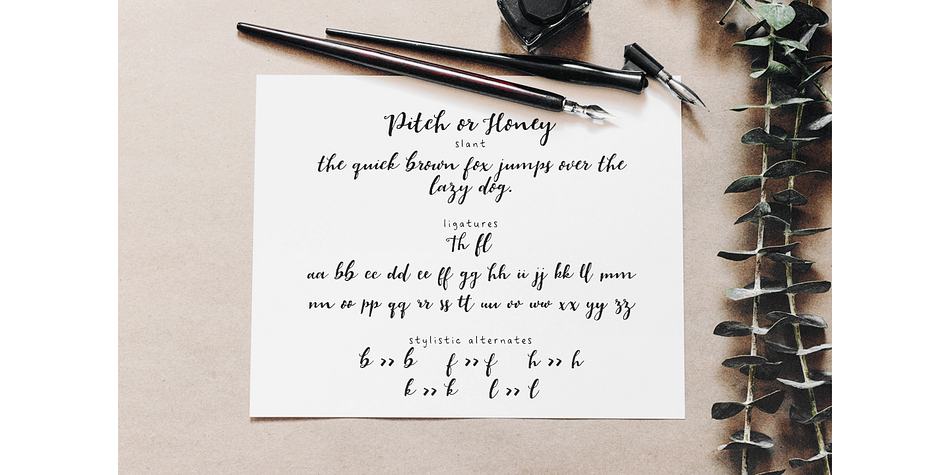 Pitch or Honey
slant
the quick brown fox jumps over the
lazy dog.
ligatures
Th fl
aa bb cc dd ee ff gg hh ii jj kk ll mm
nn oo pp qq rr ss tt uu vv ww xx yy zz
stylistic alternates
b >> b f >> f h >> h
k >> k l >> l